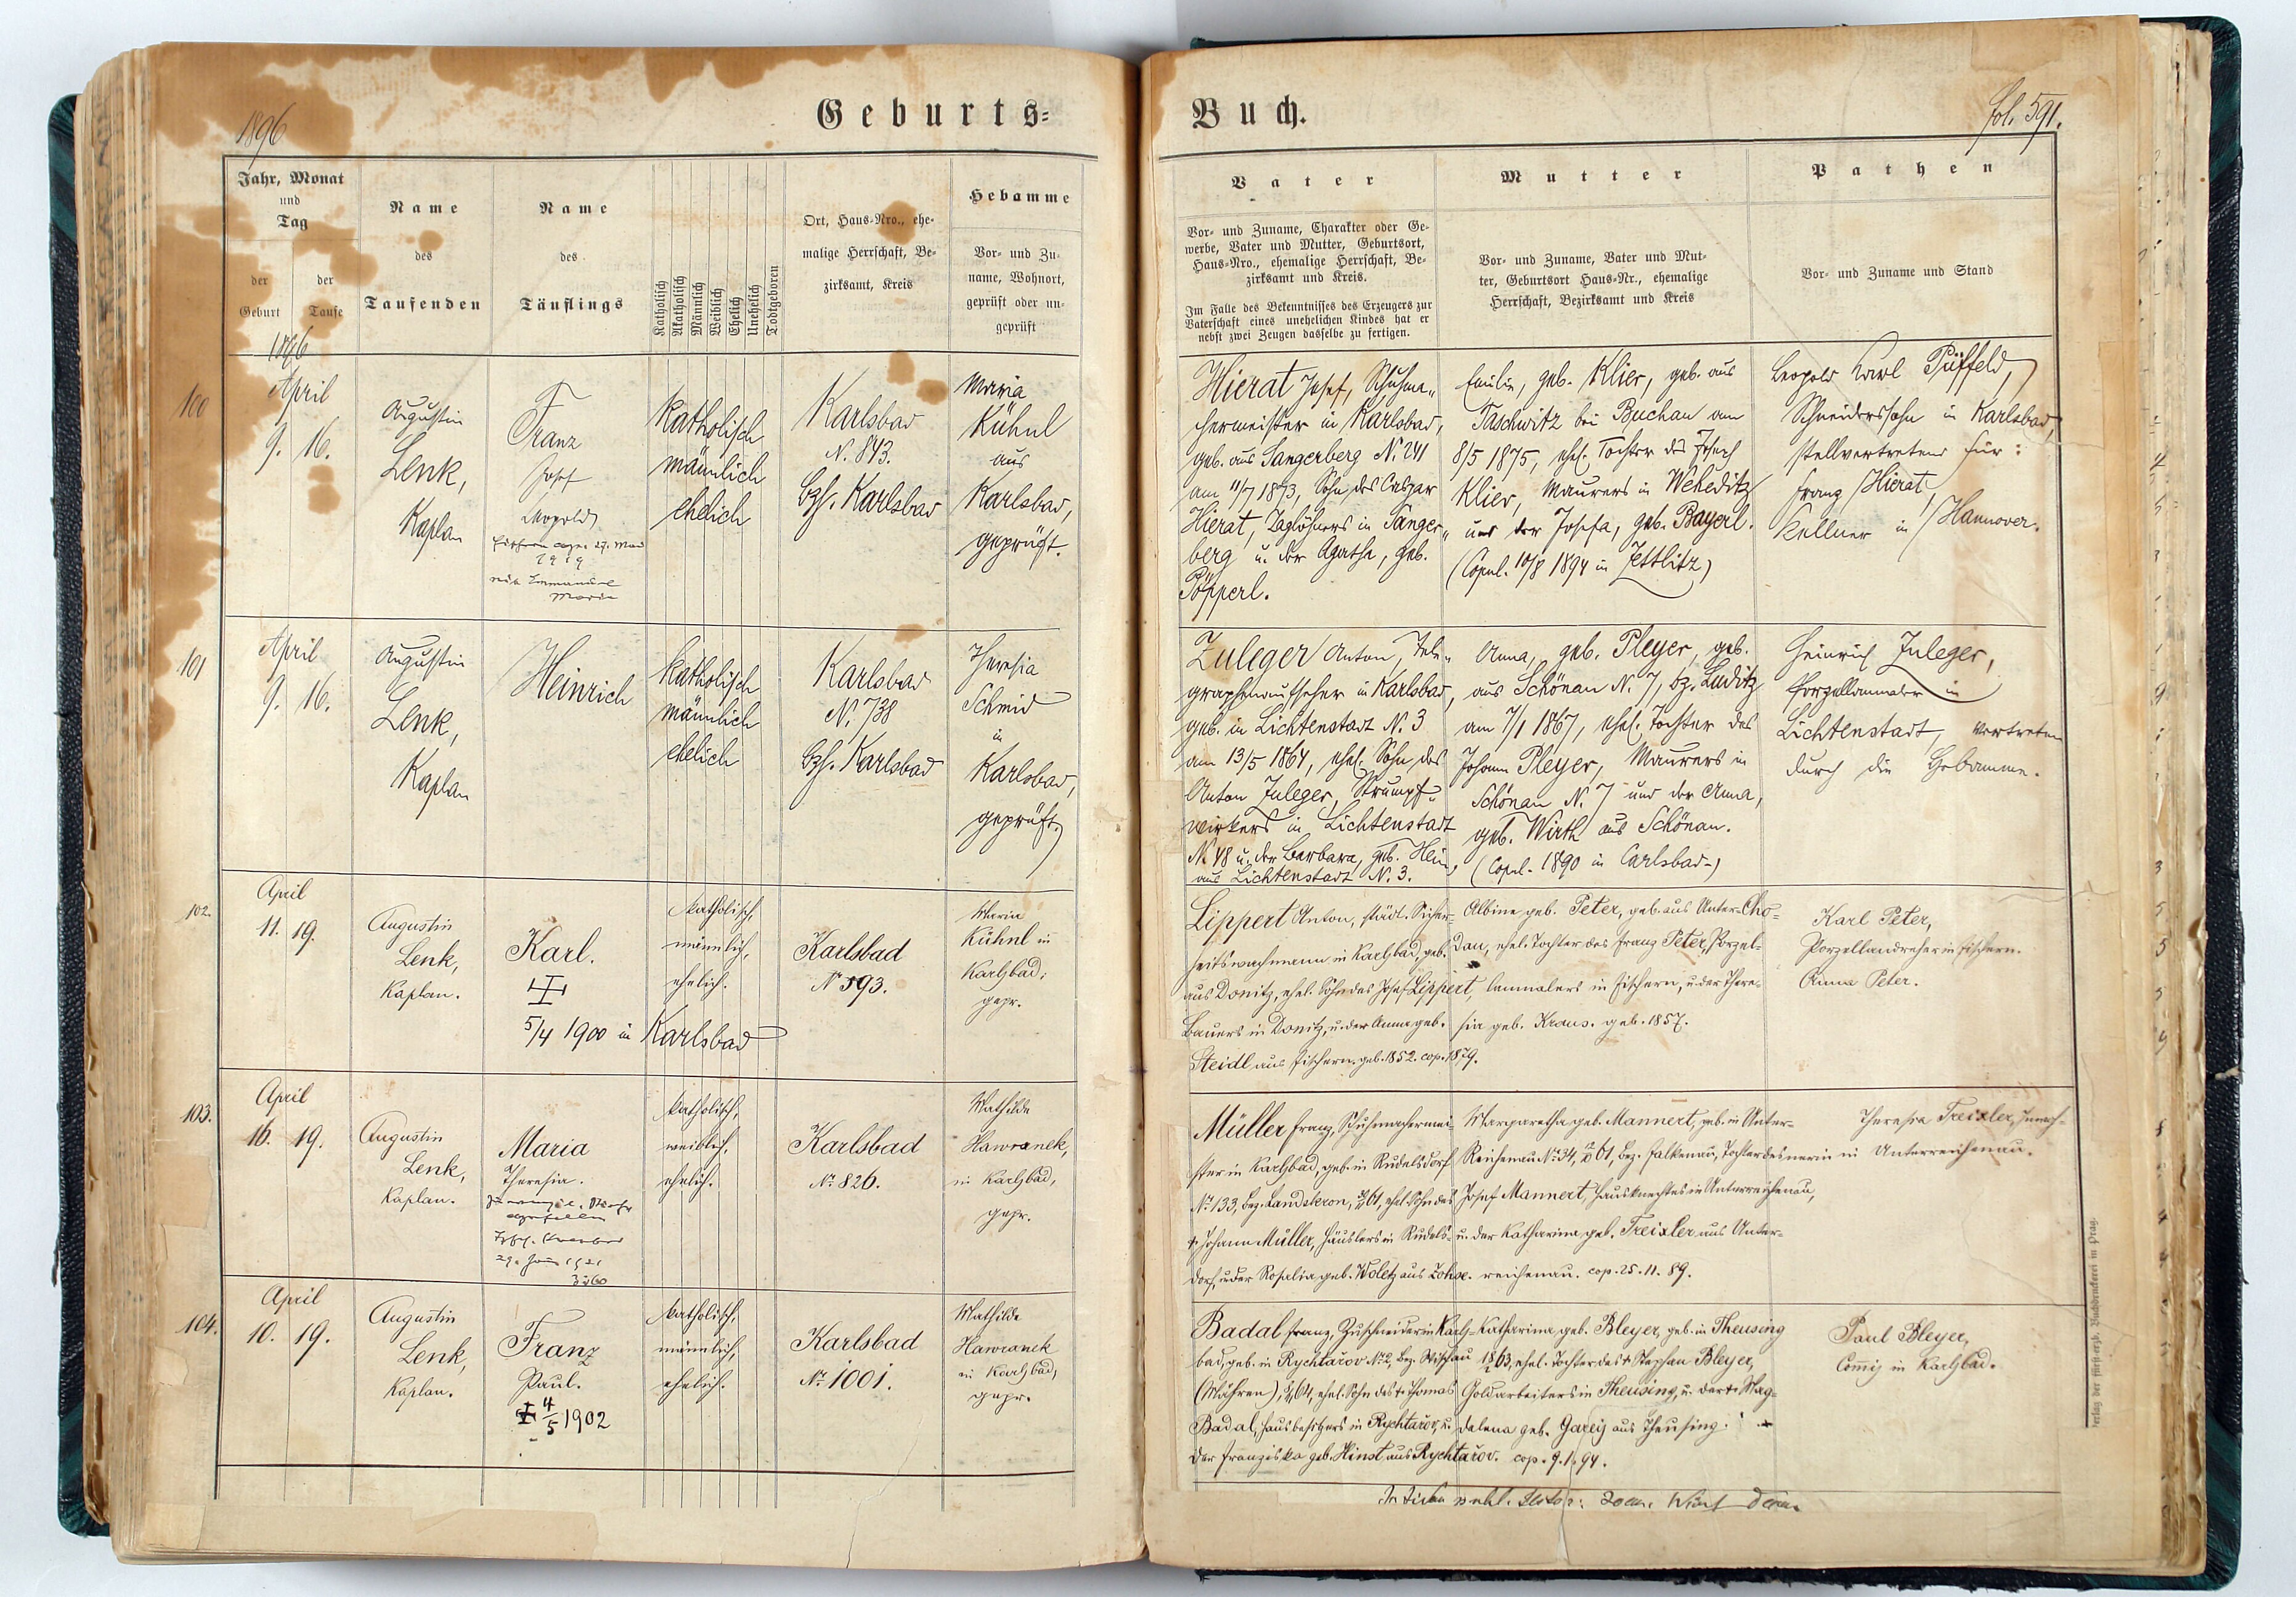 1896
Geburts-
Jahr, Monat
und
Tag
der
Geburt
der
Taufe
Name
des
Taufenden
Name
des
Täuflings
Katholisch
Akatholisch
Männlich
Weiblich
Ehelich
Unehelich
Todtgeboren
Ort, Haus-Nro., ehe-
malige Herrschaft, Be-
zirksamt, Kreis
Hebamme
Vor- und Zu-
name, Wohnort,
geprüft oder un-
geprüft
1896
100
April
9. 16.
Augustin
Lenk,
Kaplan
Franz
Josef
Leopold
1919
Maria
katholisch
männlich
ehelich
Karlsbad
N. 843.
bzh. Karlsbad
Maria
Kühnl
aus
Karlsbad,
geprüft.
101
April
9. 16.
Augustin
Lenk,
Kaplan
Heinrich
katholisch
männlich
ehelich
Karlsbad
N. 738
bzh. Karlsbad
Theresia
Schmid
in
Karlsbad,
geprüft.
102.
April
11. 19.
Augustin
Lenk,
Kaplan.
Karl.
5/4 1900 in Karlsbad
katholisch,
männlich,
ehelich.
Karlsbad
No 593.
Maria
Kühnl in
Karlsbad,
gepr.
103.
April
16. 19.
Augustin
Lenk,
Kaplan.
Maria
Theresia.
katholisch,
weiblich,
ehelich.
Karlsbad
No. 826.
Mathilde
Hawranek,
in Karlsbad,
gepr.
104.
April
10. 19.
Augustin
Lenk,
Kaplan.
Franz
Paul.
4/5 1902
katholisch,
männlich,
ehelich.
Karlsbad
No. 1001.
Mathilde
Hawranek
in Karlsbad,
gepr.
Buch.
fol. 591.
Vater
Vor- und Zuname, Charakter oder Ge-
werbe, Vater und Mutter, Geburtsort,
Haus-Nro., ehemalige Herrschaft, Be-
zirksamt und Kreis.
Im Falle des Bekenntnisses des Erzeugers zur
Vaterschaft eines unehelichen Kindes hat er
nebst zwei Zeugen dasselbe zu fertigen.
Mutter
Vor- und Zuname, Vater und Mut-
ter, Geburtsort Haus-Nr., ehemalige
Herrschaft, Bezirksamt und Kreis
Pathen
Vor- und Zuname und Stand
Hierat Josef, Schuhma-
chermeister in Karlsbad,
geb. aus Sangerberg N. 241
am 11/7 1873, Sohn des Caspar
Hierat, Taglöhners in Sanger-
berg u. der Agatha, geb.
Pöpperl.
Emilie, geb. Klier, geb. aus
Taschwitz bei Buchau am
8/5 1875, ehel. Tochter des Josef
Klier, Maurers in Weheditz
und der Josefa, geb. Bayerl.
(Copul. 10/8 1894 in Zettlitz)
Leopold Karl Püffeld,
Schneiderssohn in Karlsbad,
stellvertretend für:
Franz Hierat,
Kellner in Hannover.
Zuleger Anton, Tele-
graphenaufseher in Karlsbad,
geb. in Lichtenstadt N. 3
am 13/5 1864, ehel. Sohn des
Anton Zuleger, Strumpf-
wirkers in Lichtenstadt
N. 48 u. der Barbara, geb. Hein,
aus Lichtenstadt N. 3.
Anna, geb. Pleyer, geb.
aus Schönau N. 7, bz. Luditz
am 7/1 1867, ehel. Tochter des
Johann Pleyer, Maurers in
Schönau N. 7 und der Anna,
geb. Wirth aus Schönau.
(Copul. 1890 in Carlsbad.)
Heinrich Zuleger,
Porzellanmaler in
Lichtenstadt, vertreten
durch die Hebamme.
Lippert Anton, städt. Sicher-
heitswachmann in Karlsbad, geb.
aus Donitz, ehel. Sohn des Josef Lippert,
Bauers in Donitz, u. der Anna geb.
Steidl aus Fischern. geb. 1852. cop. 1879.
Albine geb. Peter, geb. aus Unter-Cho-
dau, ehel. Tochter des Franz Peter, Porzel-
lanmalers in Fischern, u. der There-
sia geb. Kraus. geb. 1857.
Karl Peter,
Porzellandreher in Fischern.
Anna Peter.
Müller Franz, Schuhmachermei-
ster in Karlsbad, geb. in Rudelsdorf
No. 133, Bez. Landskron, ehel. Sohn des
† Johann Müller, Häuslers in Rudels-
dorf, u. der Rosalia geb. Woletz aus Zohse.
Margaretha geb. Mannert, geb. in Unter-
Reichenau No. 34, Bez. Falkenau, Tochter des
Josef Mannert, Hausknechtes in Unterreichenau,
u. der Katharina geb. Treixler aus Unter-
reichenau. cop. 25. 11. 89.
Theresia Treixler,
in Unterreichenau.
Badal Franz, Zuschneider in Karls-
bad, geb. in Rychtařov No. 2, Bez. Wischau
(Mähren), ehel. Sohn des † Thomas
Badal, Hausbesitzers in Rychtařov, u.
der Franziska geb. Hinst aus Rychtařov. cop. 9. 1. 94.
Katharina geb. Bleyer, geb. in Theusing
ehel. Tochter des † Stephan Bleyer,
Goldarbeiters in Theusing, u. der † Mag-
dalena geb. Gareiß aus Theusing.
Paul Bleyer,
Commis in Karlsbad.
Verlag der fürst-erzb. Buchdruckerei in Prag.